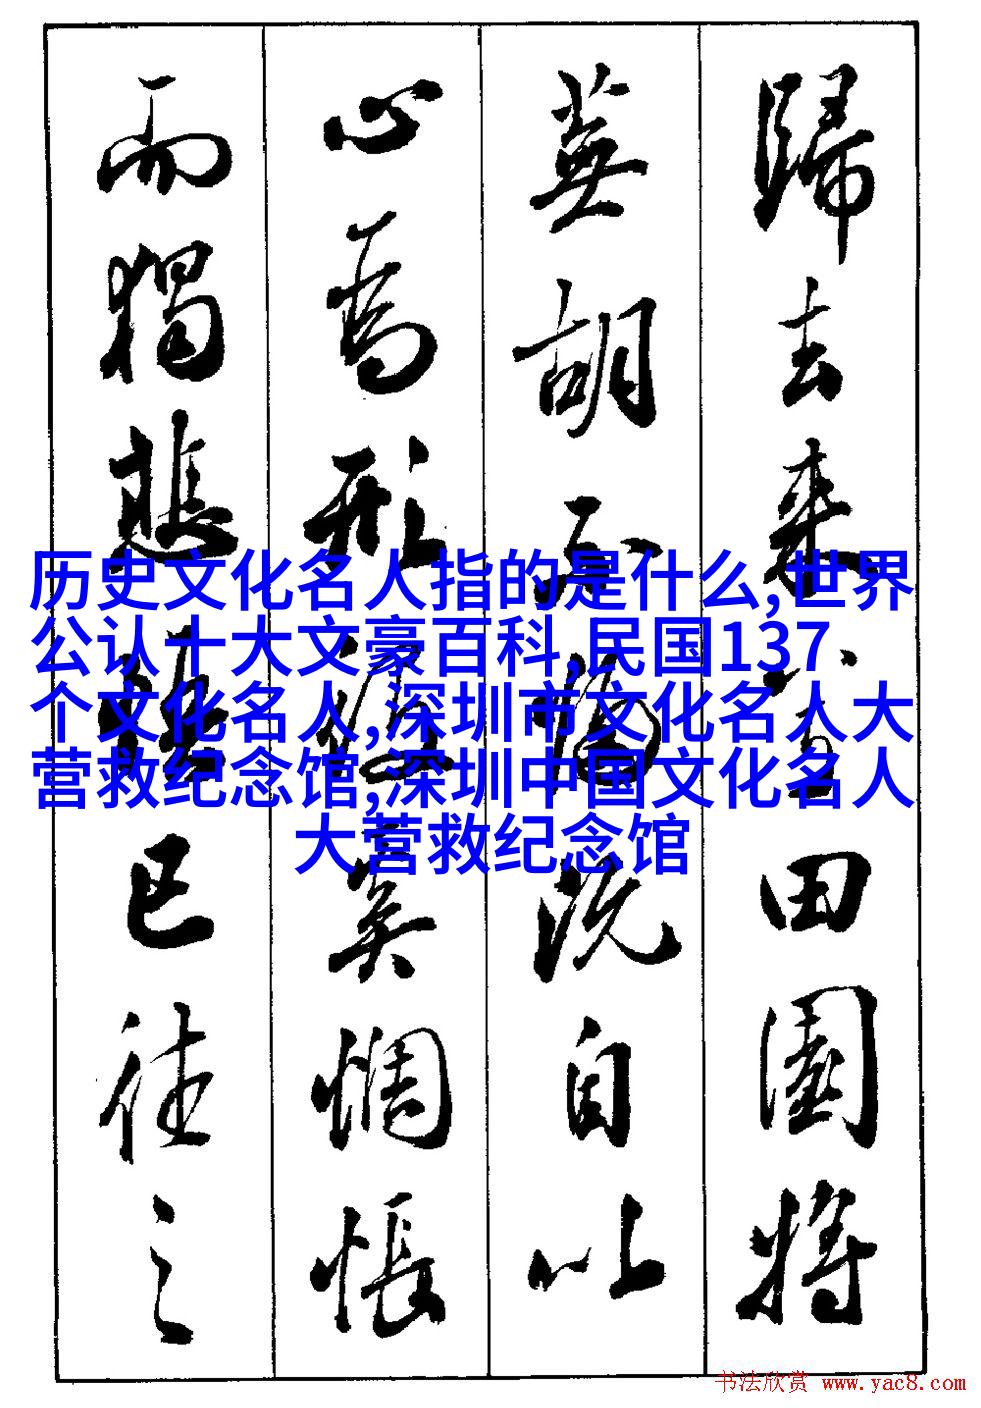 歸去來兮田園將
蕪胡不歸既自以
心為形役奚惆悵
而獨悲悟已往之
历史文化名人指的是什么,世界
公认十大文豪百科,民国137
个文化名人,深圳市文化名人大
营救纪念馆,深圳中国文化名人
大营救纪念馆
书法欣赏 www.yac8.com